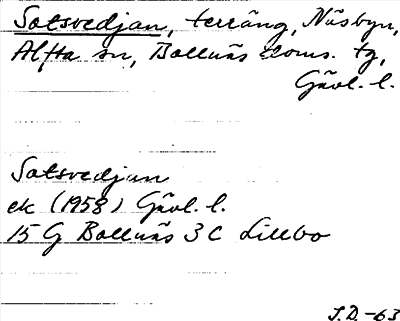 Sotsvedjan, terräng, Näsbyn,
Alfta sn, Bollnäs doms. tg,
Gävl. l.
Sotsvedjan
ek (1958) Gävl. l.
15 G Bollnäs 3 C Lillbo
J.D.-63